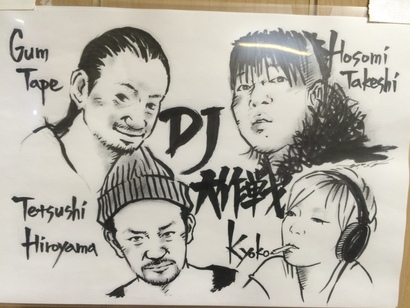 Gum
Tape
Hosomi
Takeshi
DJ
大作戦
Tetsushi
Hiroyama
Kyoko